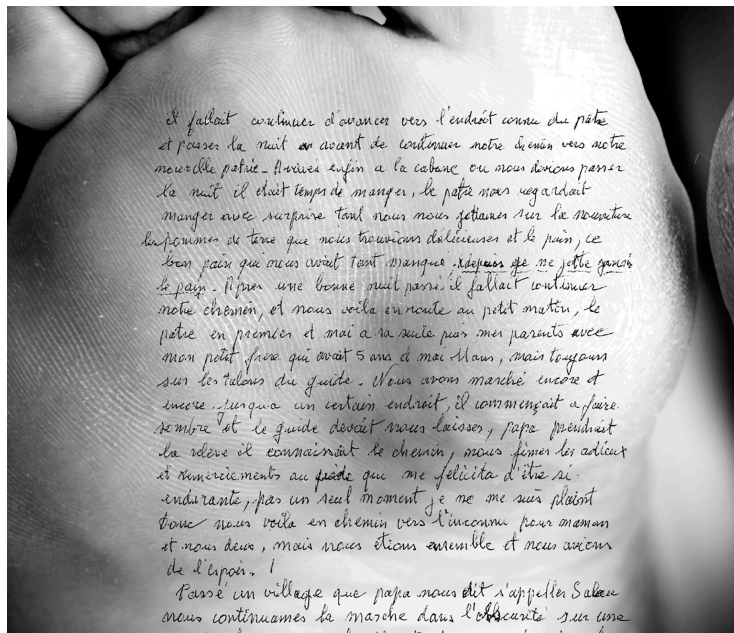 il fallait continuer d'avancer vers l'endroit connu du pâtre
et passer la nuit avant de continuer notre chemin vers notre
nouvelle patrie - Arrivés enfin a la cabane ou nous devions passer
la nuit il était temps de manger, le patre nous regardait
manger avec surprise tant nous nous jetiames sur la nourriture
les pommes de terre que nous trouvions délicieuses et le pain, ce
bon pain qui nous avait tant manqué. depuis je ne jette jamais
le pain. Après une bonne nuit passé il fallait continuer
notre chemin, et nous voila en route au petit matin, le
patre en premier et moi a sa suite puis mes parents avec
mon petit frère qui avait 5 ans et moi 11 ans, mais toujours
sur les talons du guide. Nous avons marché encore et
encore jusqu'a un certain endroit, il commençait a faire
sombre et le guide devait nous laisser, papa prendrait
la relève il connaissait le chemin, nous fimes les adieux
et remerciements au guide que me félicita d'être si
endurante, pas un seul moment je ne me suis plaint
Donc nous voila en chemin vers l'inconnu pour maman
et nous deux, mais nous étions ensemble et nous avions
de l'espoir. !
Passé un village que papa nous dit s'appeller Salau
nous continuames la marche dans l'obscurité sur une